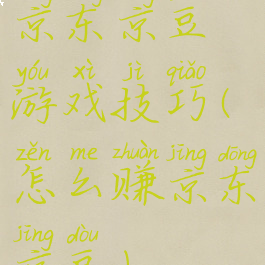 京东京豆
yóu xì jì qiǎo
游戏技巧(
zěn me zhuàn jīng dōng
怎么赚京东
jīng dòu
京豆)